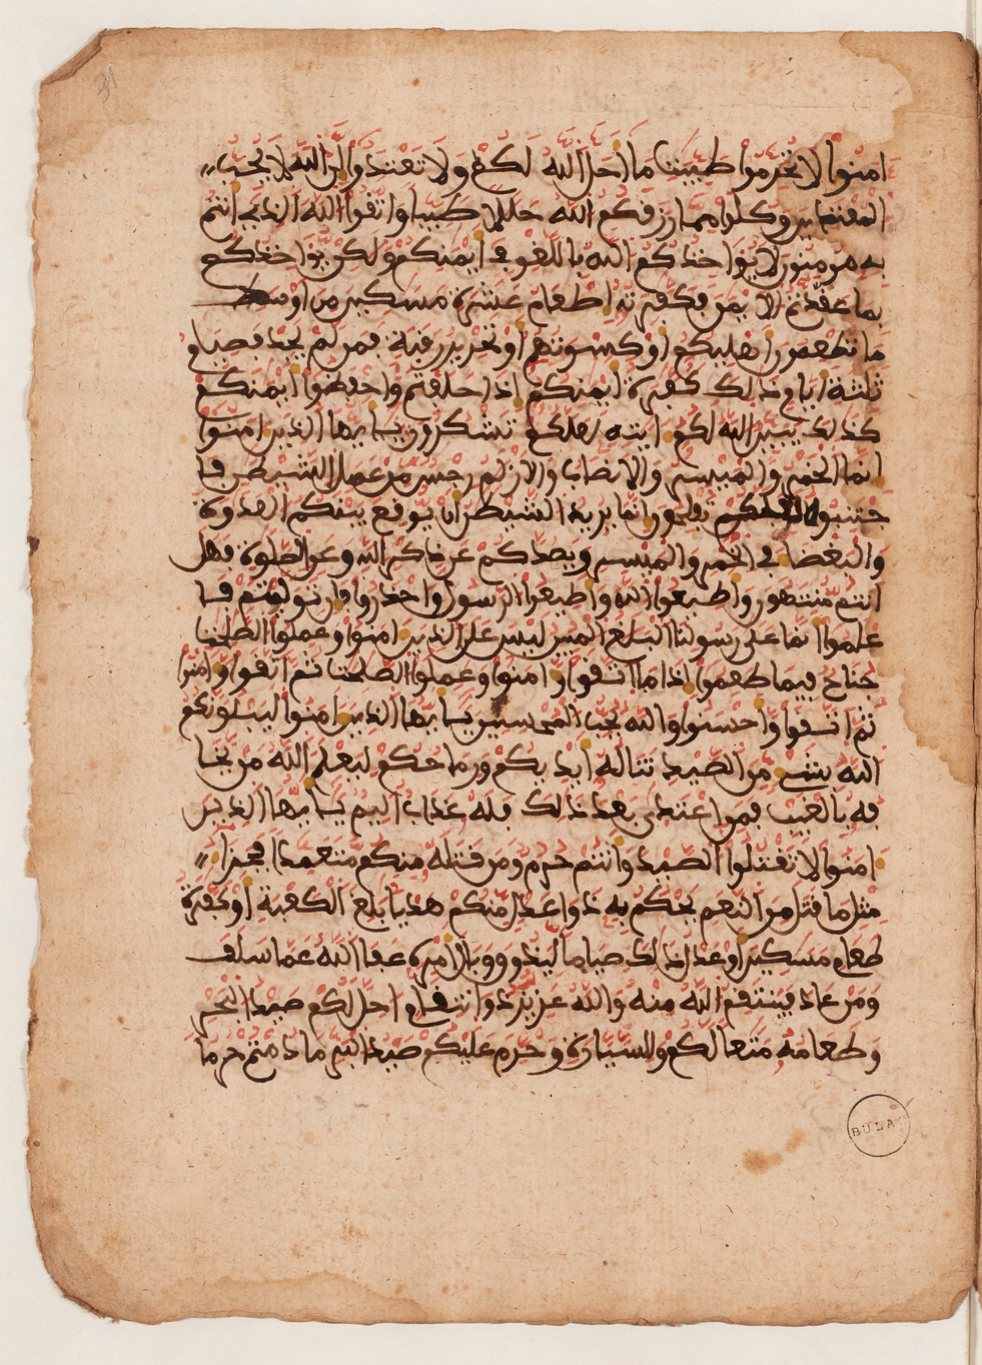 امنوا لا تحرموا طيبت ما احل الله لكم ولا تعتدوا ان الله لا يحب
المعتدين وكلوا مما رزقكم الله حللا طيبا واتقوا الله الذي انتم
به مومنون لا يواخذكم الله باللغو في ايمنكم ولكن يواخذكم
بما عقدتم الايمن فكفرته اطعام عشرة مسكين من اوسط
ما تطعمون اهليكم او كسوتهم او تحرير رقبة فمن لم يجد فصيام
ثلثة ايام ذلك كفرة ايمنكم اذا حلفتم واحفظوا ايمنكم
كذلك يبين الله لكم ايته لعلكم تشكرون يايها الذين امنوا
انما الخمر والميسر والانصاب والازلم رجس من عمل الشيطن فا
جتنبوه لعلكم تفلحون انما يريد الشيطن ان يوقع بينكم العدوة
والبغضا في الخمر والميسر ويصدكم عن ذكر الله وعن الصلوة فهل
انتم منتهون واطيعوا الله واطيعوا الرسول واحذروا فان توليتم فا
علموا انما على رسولنا البلغ المبين ليس على الذين امنوا وعملوا الصلحت
جناح فيما طعموا اذا ما اتقوا وامنوا وعملوا الصلحت ثم اتقوا وامنوا
ثم اتقوا واحسنوا والله يحب المحسنين يايها الذين امنوا ليبلونكم
الله بشيء من الصيد تناله ايديكم ورماحكم ليعلم الله من يخا
فه بالغيب فمن اعتدى بعد ذلك فله عذاب اليم يايها الذين
امنوا لا تقتلوا الصيد وانتم حرم ومن قتله منكم متعمدا فجزا
مثل ما قتل من النعم يحكم به ذوا عدل منكم هديا بلغ الكعبة او كفرة
طعام مسكين او عدل ذلك صياما ليذوق وبال امره عفا الله عما سلف
ومن عاد فينتقم الله منه والله عزيز ذو انتقام احل لكم صيد البحر
وطعامه متعا لكم وللسيارة وحرم عليكم صيد البر ما دمتم حرما
BULA